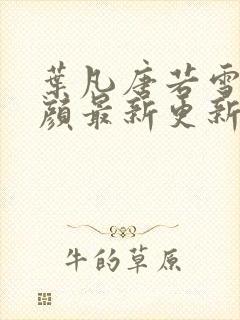 葉凡唐若雪
顏最新更新
牛的草原